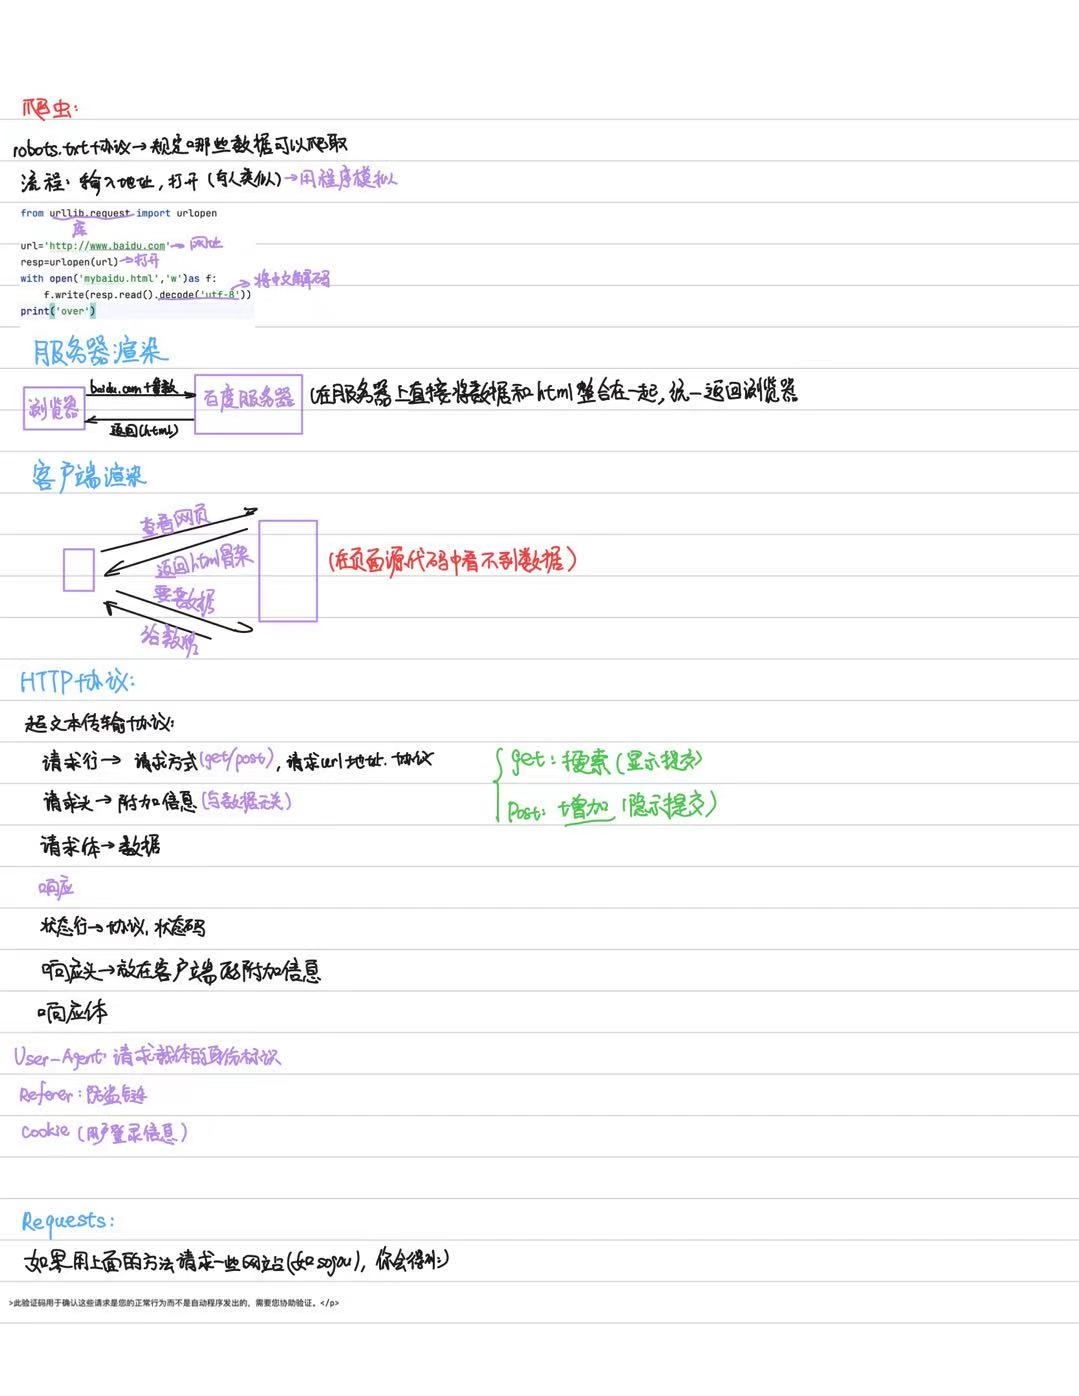 爬虫:
robots.txt协议→规定哪些数据可以爬取
流程: 输入地址,打开 (与人类似)→用程序模拟
from urllib.request import urlopen
库
url='http://www.baidu.com'→网址
resp=urlopen(url)→打开
with open('mybaidu.html','w')as f:
f.write(resp.read().decode('utf-8'))→将中文解码
print('over')
服务器渲染
浏览器 baidu.com+参数 百度服务器 (在服务器上直接将数据和html整合在一起,统一返回浏览器
返回(html)
客户端渲染
查看网页
返回html骨架 (在页面源代码中看不到数据)
要数据
给数据
HTTP协议:
超文本传输协议:
请求行→ 请求方式(get/post), 请求url地址. 协议
get: 搜索 (显示提交)
请求头→附加信息(与数据无关)
Post: 增加 (隐示提交)
请求体→数据
响应
状态行→协议,状态码
响应头→放在客户端的附加信息
响应体
User-Agent: 请求载体的身份标识
Referer: 防盗链
Cookie (用户登录信息)
Requests:
如果用上面的方法请求一些网站(如sogou), 你会得到:)
>此验证码用于确认这些请求是您的正常行为而不是自动程序发出的，需要您协助验证。</p>